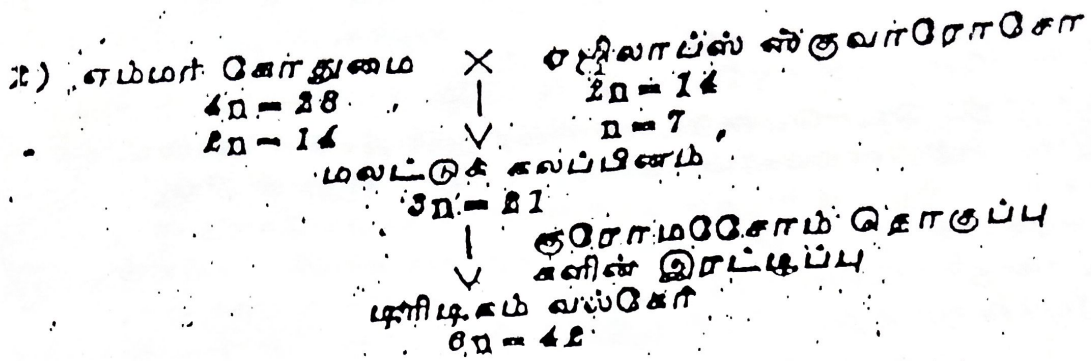 2) எம்மர் கோதுமை × ஏஜிலாப்ஸ் ஸ்குவர்ரோசா
4n = 28 2n = 14
2n = 14 n = 7
மலட்டுக் கலப்பினம்
3n = 21
குரோமோசோம் தொகுப்பு
களின் இரட்டிப்பு
டிரிடிகம் வல்கேர்
6n = 42